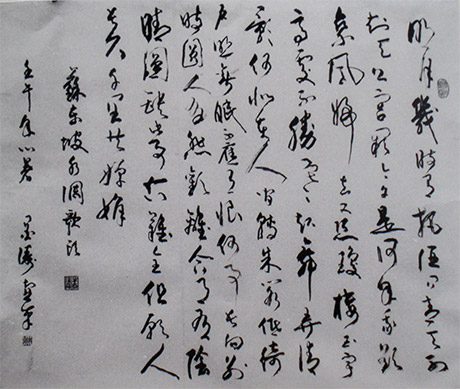 明月幾時有把酒問青天不
知天上宫闕今夕是何年我欲
乘風歸去又恐瓊樓玉宇
高處不勝寒起舞弄清
影何似在人間轉朱閣低綺
户照無眠不應有恨何事長向别
時圓人有悲歡離合月有陰
晴圓缺此事古難全但願人
長久千里共嬋娟
蘇東坡水調歌頭
壬午年小暑